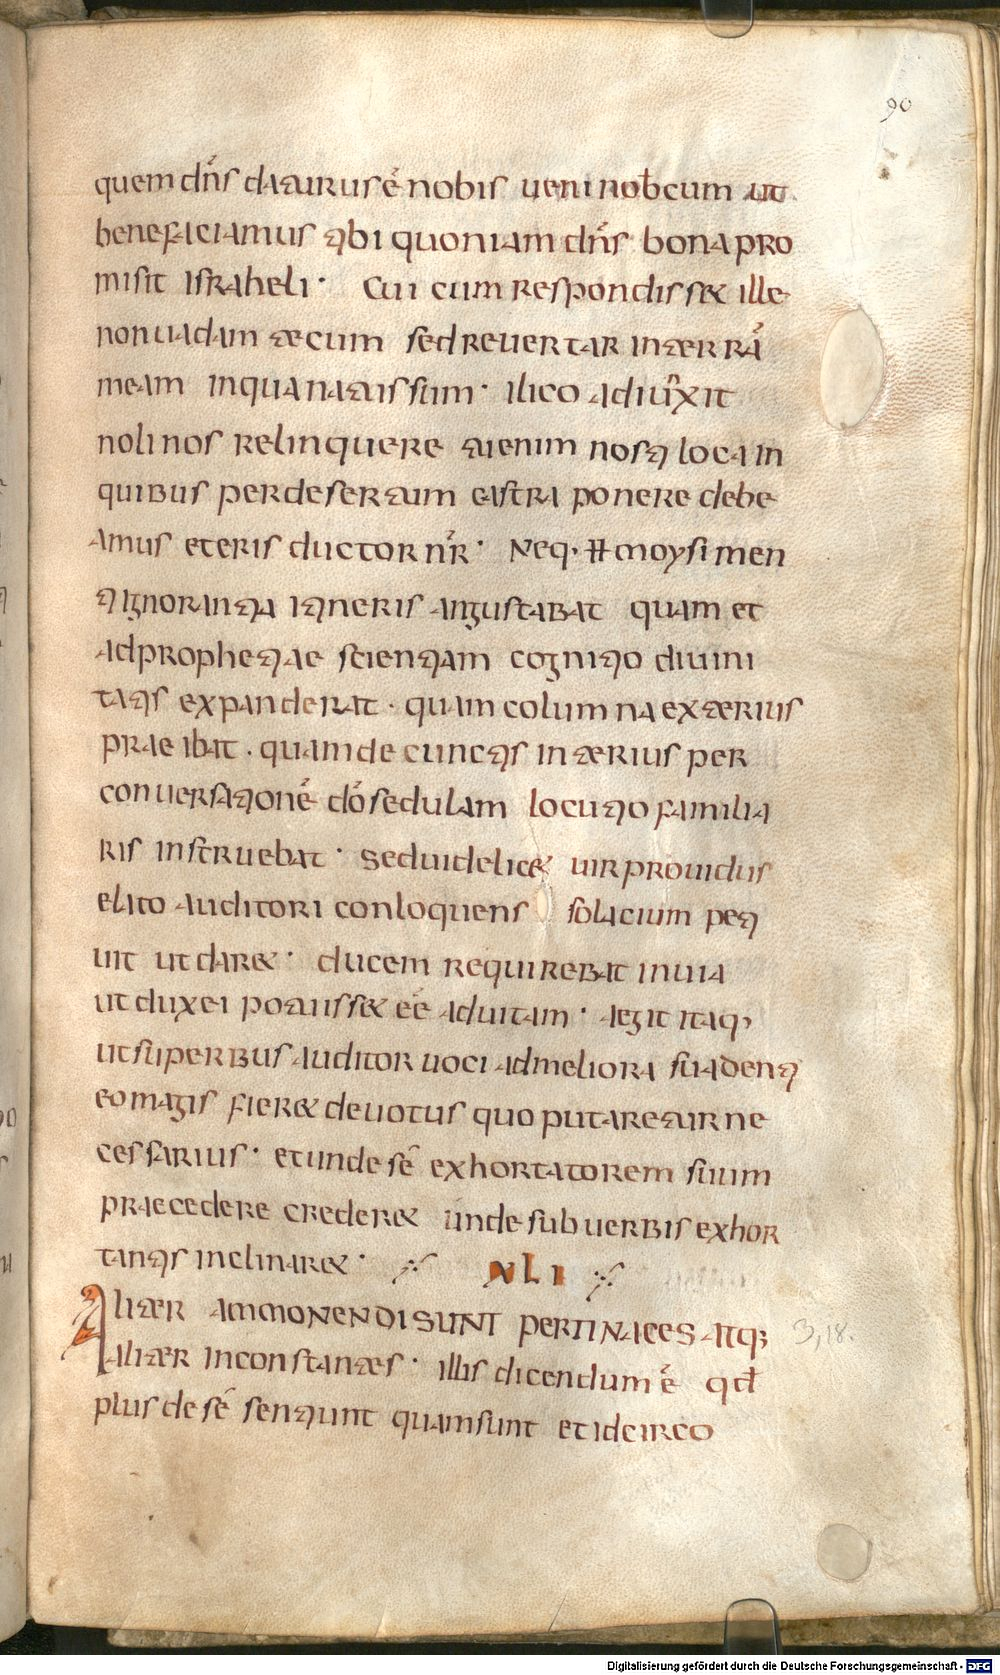 90
quem dn̄s daturus ē nobis ueni nobcum ut
benefaciamus tibi quoniam dn̄s bona pro
misit israheli · Cui cum respondisset ille
non uadam tecum sed reuertar in terrā
meam in qua natus sum · ilico adiūxit
noli nos relinquere tu enim nosti loca in
quibus per desertum castra ponere debe
amus et eris ductor nr̄ · Neq· H moysi men
ti ignorantia itineris angustabat quam et
ad prophetiae scientiam cognitio diuini
tatis expanderat · quam columna exterius
praeibat · quam de cunctis interius per
conuersationē dō sedulam locutio familia
ris instruebat · sed uidelicet uir prouidus
elato auditori conloquens solacium peti
uit ut daret · ducem requirebat in uia
ut dux ei potuisset eē ad uitam · Aegit itaq,
ut superbus auditor uoci ad meliora suadenti
eo magis fieret deuotus quo putaretur ne
cessarius · et unde sē exhortatorem suum
praecedere crederet inde sub uerbis exhor
tantis inclinaret · XLI
Aliter ammonendi sunt pertinaces atq;
aliter inconstantes · illis dicendum ē qđ
plus de sē sentiunt quam sunt et idcirco
3,18.
Digitalisierung gefördert durch die Deutsche Forschungsgemeinschaft - DFG